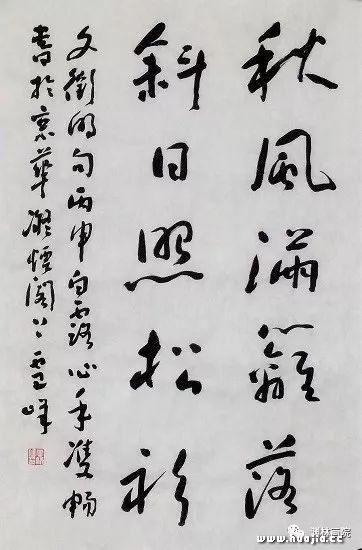 秋風滿籬落
斜日照松衫
文徵明句丙申白露心手雙暢
書於京華凝煙閣雲峰
林書院
www.huajia.cc